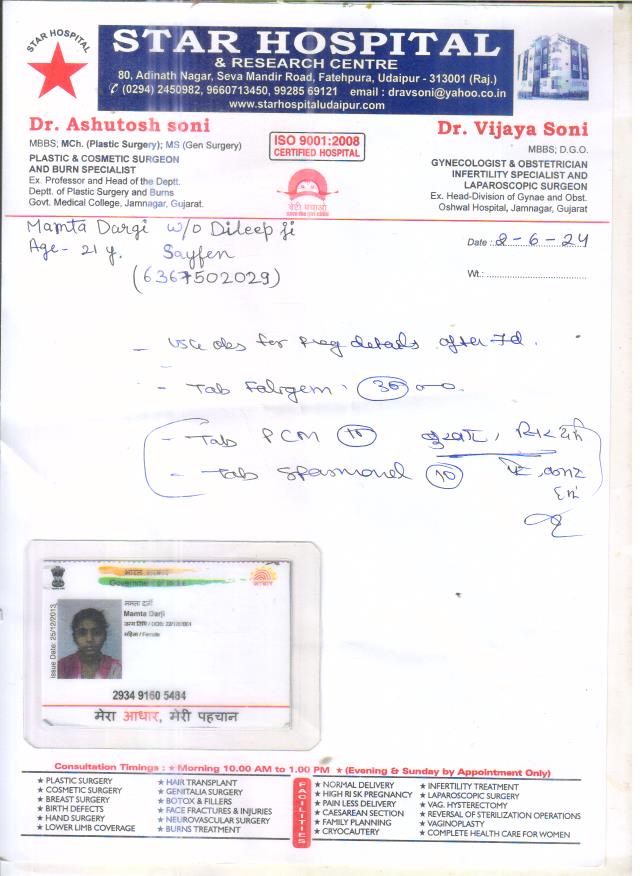 STAR HOSPITAL
STAR HOSPITAL
& RESEARCH CENTRE
80, Adinath Nagar, Seva Mandir Road, Fatehpura, Udaipur - 313001 (Raj.)
(0294) 2450982, 9660713450, 99285 69121 email : dravsoni@yahoo.co.in
www.starhospitaludaipur.com
Dr. Ashutosh soni
MBBS; MCh. (Plastic Surgery); MS (Gen Surgery)
PLASTIC & COSMETIC SURGEON
AND BURN SPECIALIST
Ex. Professor and Head of the Deptt.
Deptt. of Plastic Surgery and Burns
Govt. Medical College, Jamnagar, Gujarat.
ISO 9001:2008
CERTIFIED HOSPITAL
बेटी बचाओ
save the girl child
Dr. Vijaya Soni
MBBS; D.G.O.
GYNECOLOGIST & OBSTETRICIAN
INFERTILITY SPECIALIST AND
LAPAROSCOPIC SURGEON
Ex. Head-Division of Gynae and Obst.
Oshwal Hospital, Jamnagar, Gujarat
Mamta Dargi w/o Dileep ji
Age - 21 y. Sayfen
(6367502029)
Date : 2-6-24
Wt.:
- USG obs for Preg details after 7d.
- Tab 30
- Tab PCM 10 बुखार, सिरदर्द
- Tab Spasmonel 10 पेट
भारत सरकार
Government of India
आधार
Issue Date: 25/12/2013
ममता दर्जी
Mamta Darji
जन्म तिथि / DOB:
महिला / Female
2934 9160 5484
मेरा आधार, मेरी पहचान
Consultation Timings : ★ Morning 10.00 AM to 1.00 PM ★ (Evening & Sunday by Appointment Only)
★ PLASTIC SURGERY
★ COSMETIC SURGERY
★ BREAST SURGERY
★ BIRTH DEFECTS
★ HAND SURGERY
★ LOWER LIMB COVERAGE
★ HAIR TRANSPLANT
★ GENITALIA SURGERY
★ BOTOX & FILLERS
★ FACE FRACTURES & INJURIES
★ NEUROVASCULAR SURGERY
★ BURNS TREATMENT
FACILITIES
★ NORMAL DELIVERY
★ HIGH RISK PREGNANCY
★ PAIN LESS DELIVERY
★ CAESAREAN SECTION
★ FAMILY PLANNING
★ CRYOCAUTERY
★ INFERTILITY TREATMENT
★ LAPAROSCOPIC SURGERY
★ VAG. HYSTERECTOMY
★ REVERSAL OF STERILIZATION OPERATIONS
★ VAGINOPLASTY
★ COMPLETE HEALTH CARE FOR WOMEN